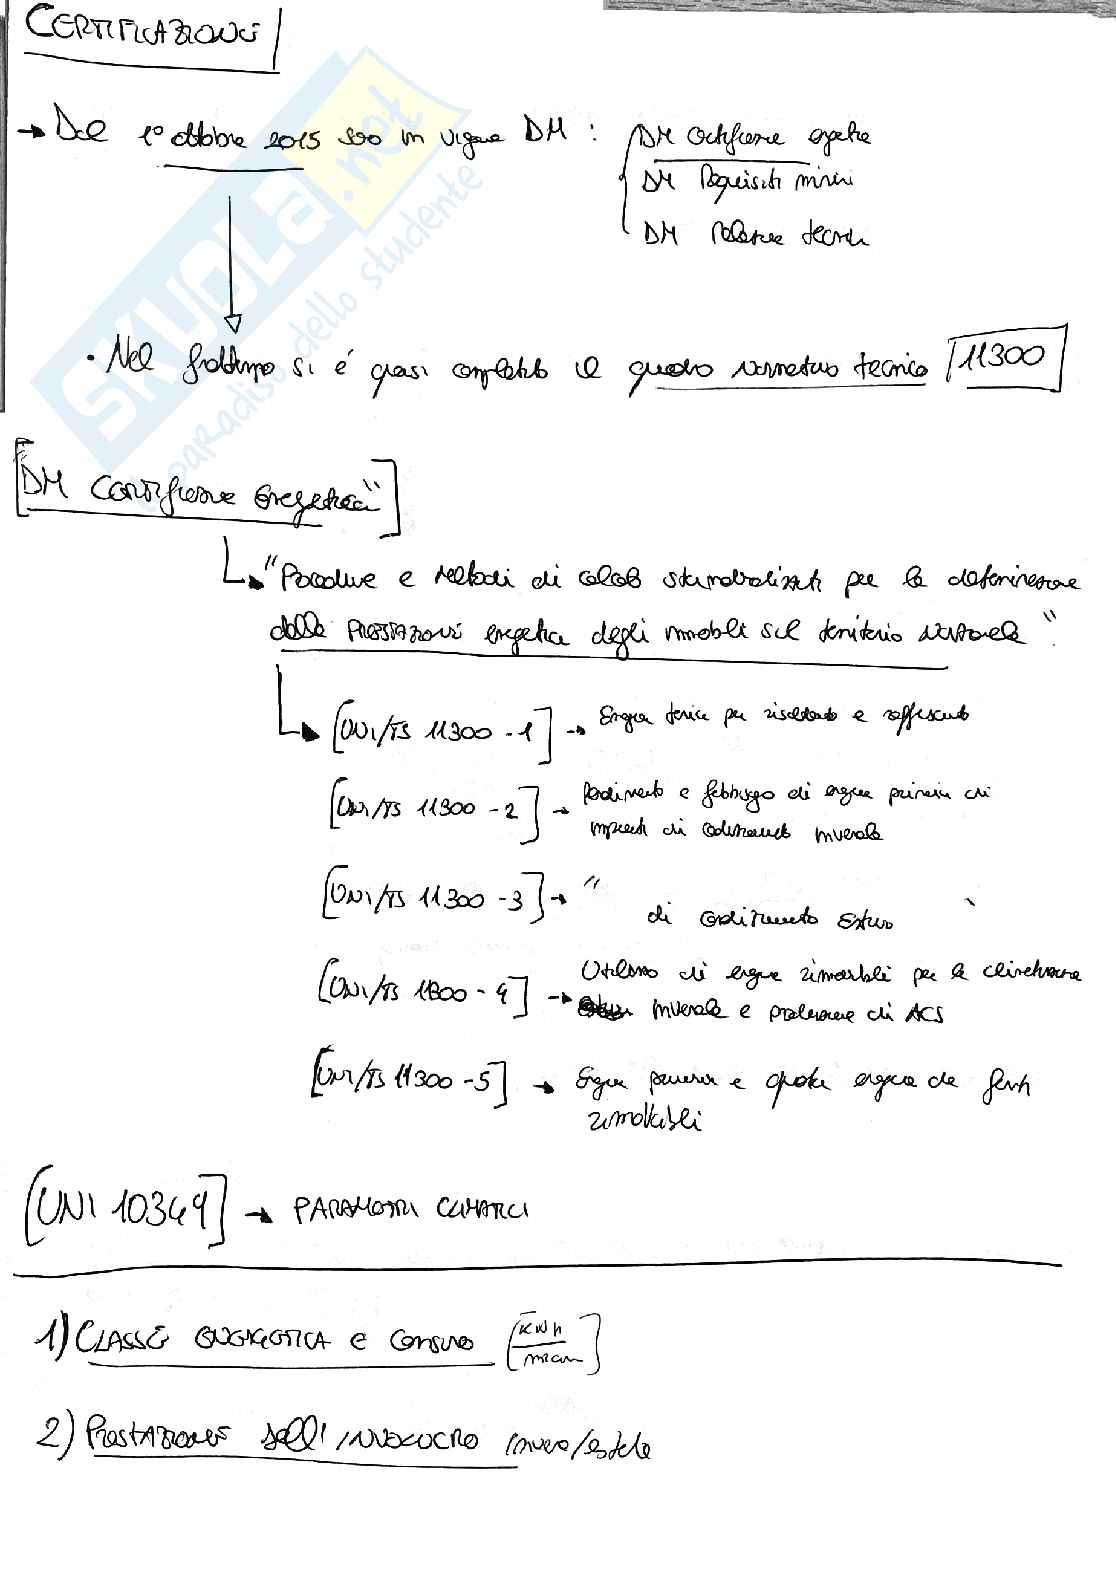 CERTIFICAZIONE
→ Dal 1° ottobre 2015 sono in vigore DM :
DM Certificazione energetica
DM Requisiti minimi
DM Relazione tecnica
• Nel frattempo si è quasi completato il quadro normativo tecnico 11300
[DM Certificazione energetica"]
"Procedure e metodi di calcolo standardizzati per la determinazione
della PRESTAZIONE energetica degli immobili sul territorio nazionale"
[UNI/TS 11300 - 1] → Energia termica per riscaldamento e raffrescamento
[UNI/TS 11300 - 2] → Rendimento e fabbisogno di energia primaria di
impianti di climatizzazione invernale
[UNI/TS 11300 - 3] → "
di estivo
[UNI/TS 11300 - 4] → Utilizzo di energia rinnovabili per la climatizzazione
invernale e produzione di ACS
[UNI/TS 11300 - 5] → Energia primaria e quota energia da fonti
rinnovabili
[UNI 10349] → PARAMETRI CLIMATICI
1) CLASSE ENERGETICA e consumo [kWh/m²anno]
2) PRESTAZIONE DELL'INVOLUCRO inverno/estate
SKUOLA.net
il paradiso dello studente